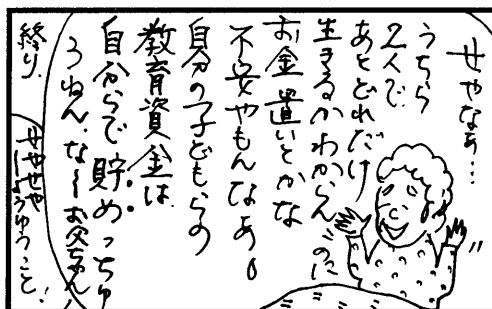 せやなぁ…
うちら
2人で
あとどれだけ
生きるかわからんのに
お金置いとかな
不安やもんなあ。
自分の子どもらの
教育資金は
自分らで貯めっちゅ
うねん、なーお父ちゃん!
せやせや
しょうゆうこと!
終り。